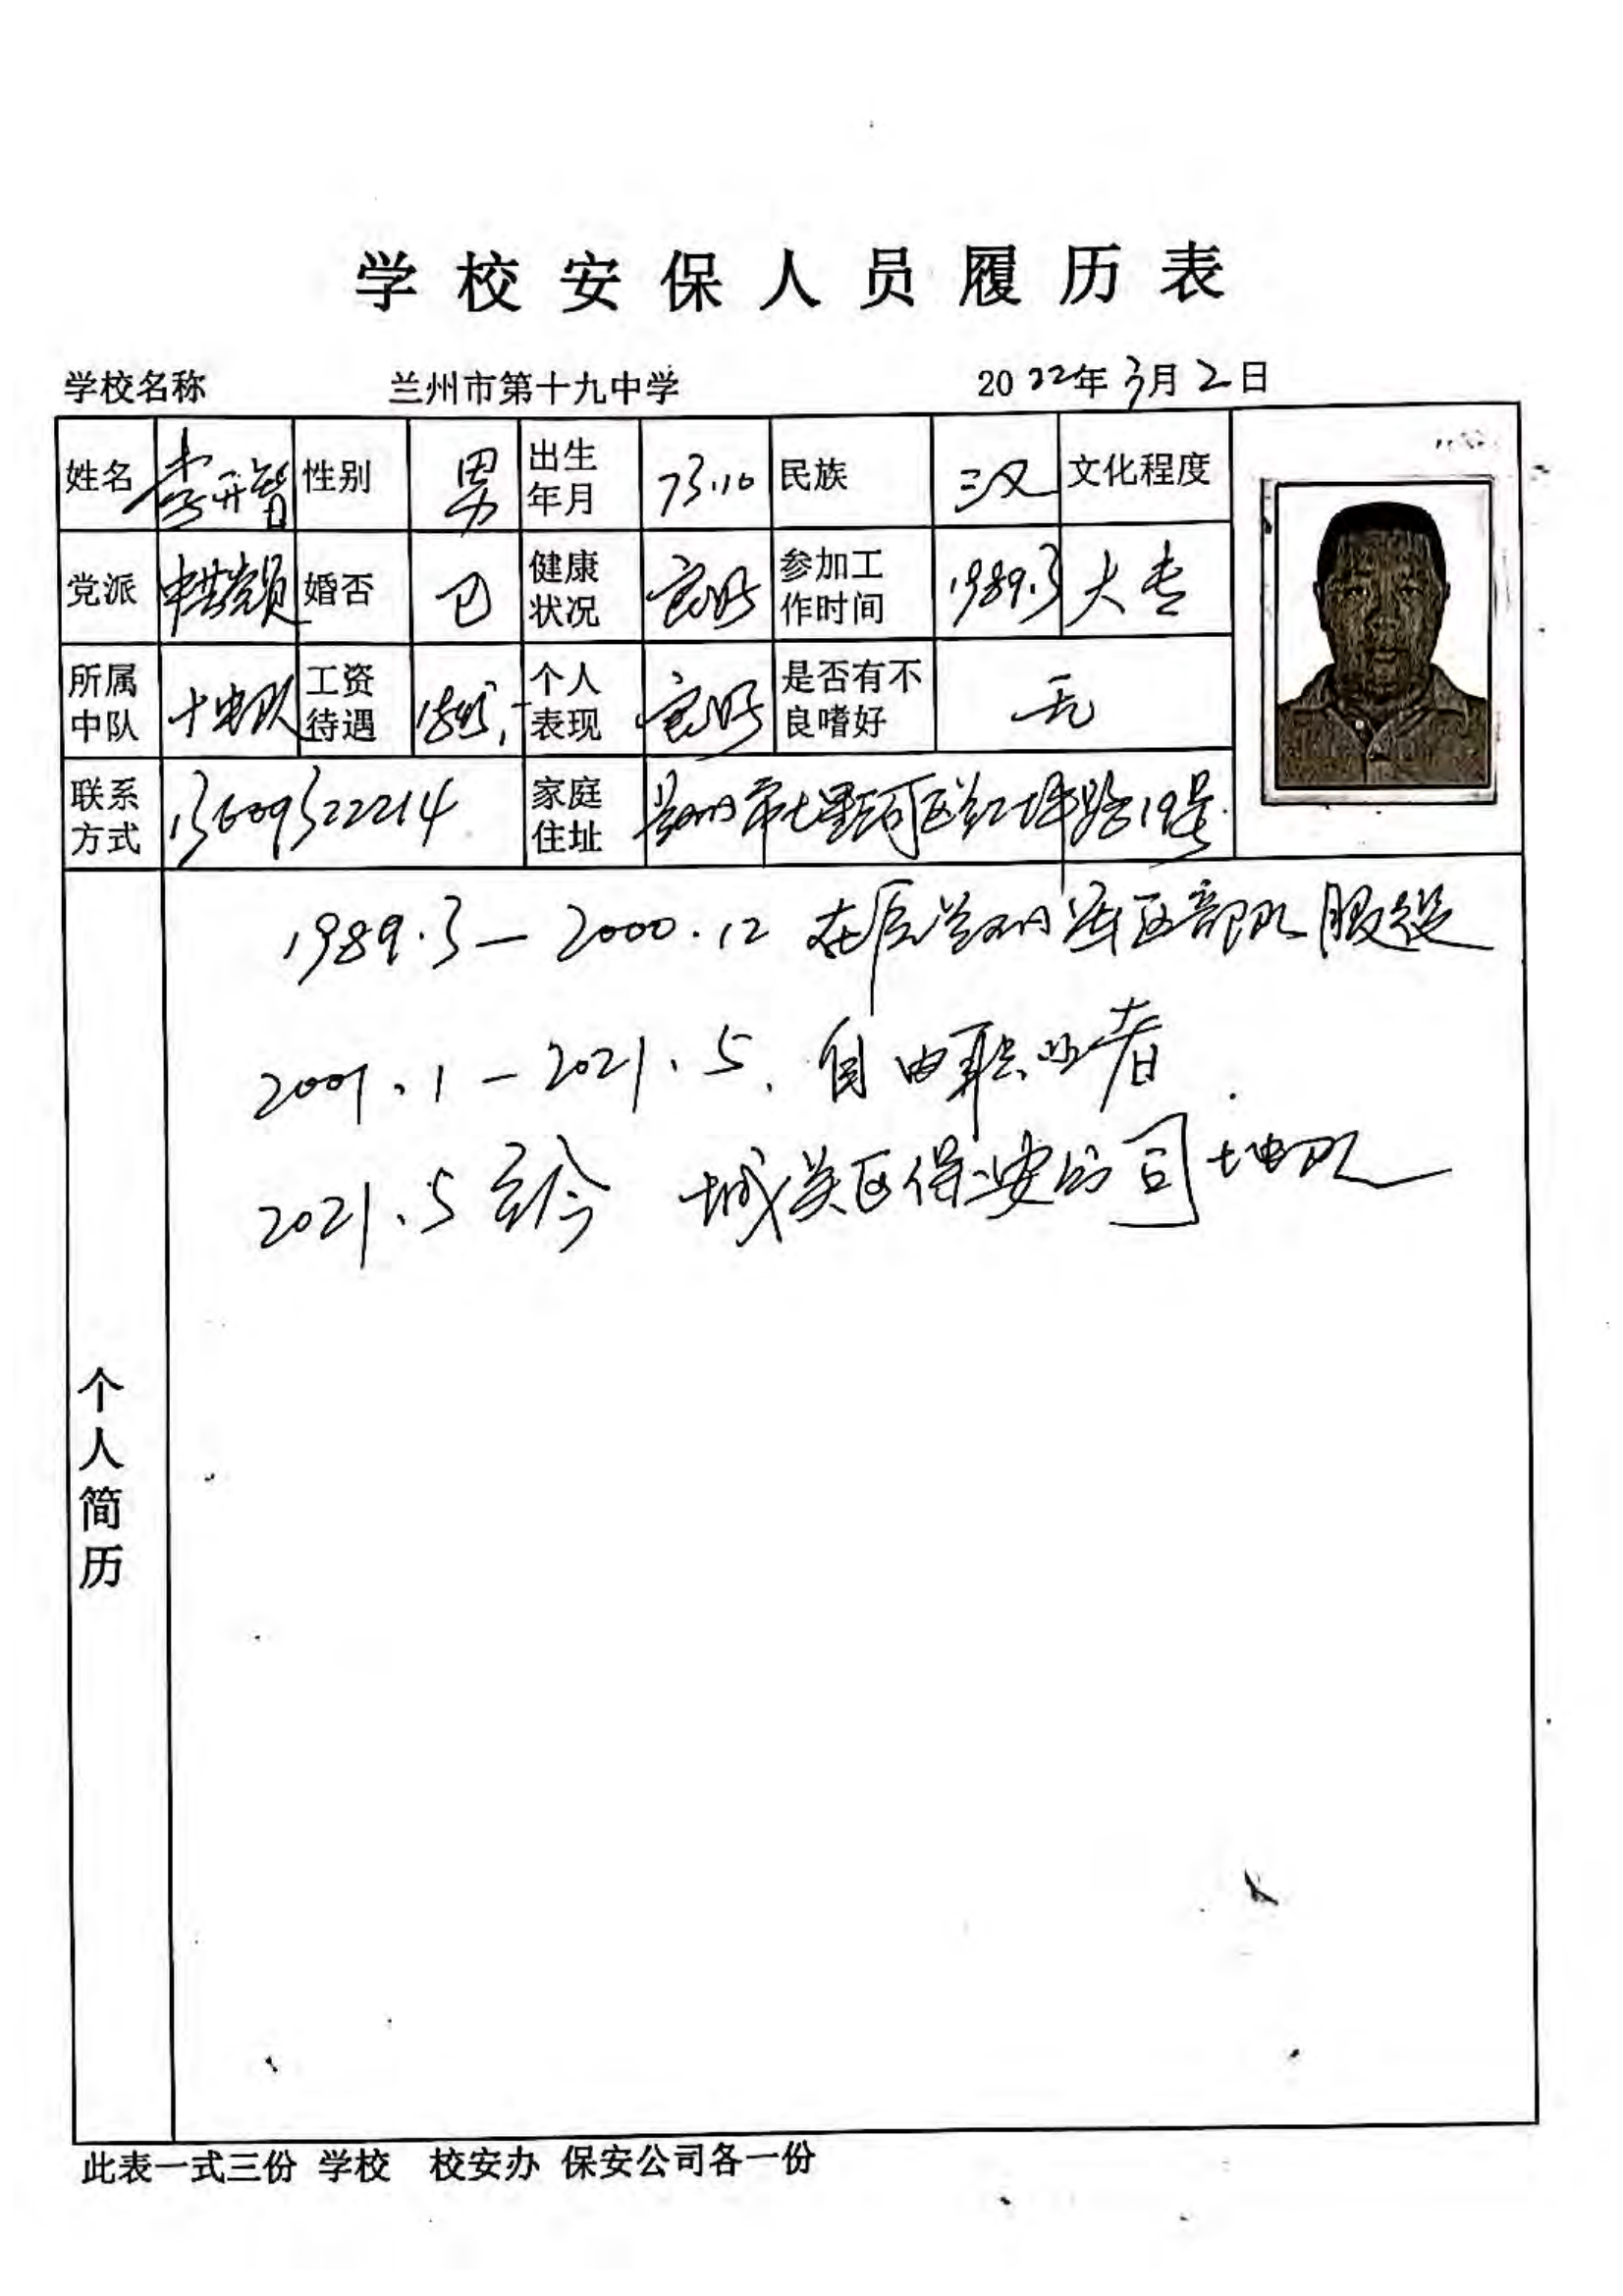 学校安保人员履历表
学校名称 兰州市第十九中学 2022年3月2日
姓名 李开智 性别 男 出生年月 73.10 民族 汉 文化程度
党派 中共党员 婚否 已 健康状况 良好 参加工作时间 1989.3 大专
所属中队 十中队 工资待遇 个人表现 良好 是否有不良嗜好 无
联系方式 13609322214 家庭住址 兰州市七里河区兰工坪路19号
个人简历
1989.3—2000.12 在原兰州军区部队服役
2001.1—2021.5. 自由职业者.
2021.5至今 城关区保安公司十中队
此表一式三份 学校 校安办 保安公司各一份